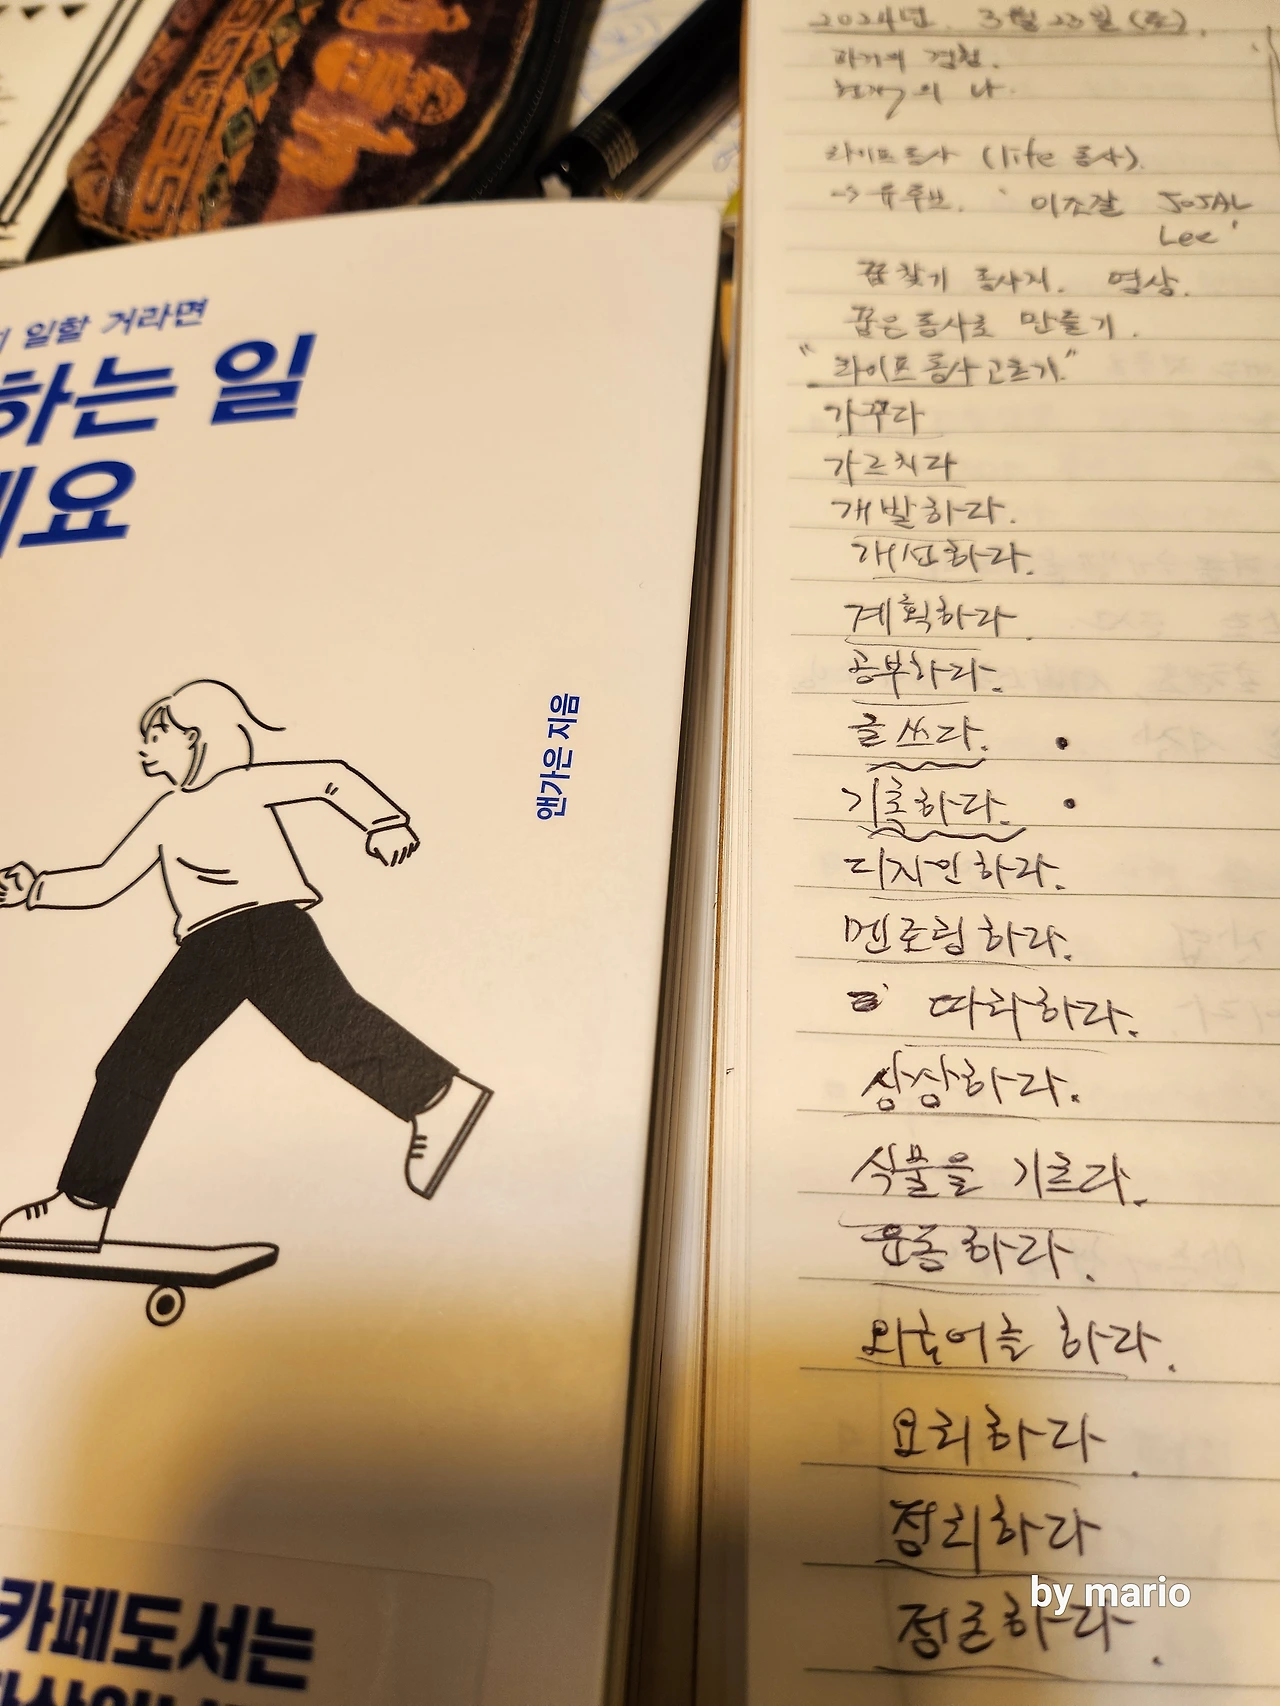 일할 거라면
하는 일
세요
앤가은 지음
카페도서는
2024년. 3월 23일 (토).
과거의 경험.
현재의 나.
라이프동사 (life 동사).
-> 유튜브. '이조잘 JOJAL
Lee'
꿈찾기 동사지. 영상.
꿈은 동사로 만들기.
"라이프동사고르기."
가꾸다
가르치다
개발하다.
개선하다.
계획하다.
공부하다.
글쓰다.
기록하다.
디자인하다.
멘토링하다.
따라하다.
상상하다.
식물을 기르다.
운동하다.
외국어를 하다.
요리하다.
정리하다
정돈하다.
by mario